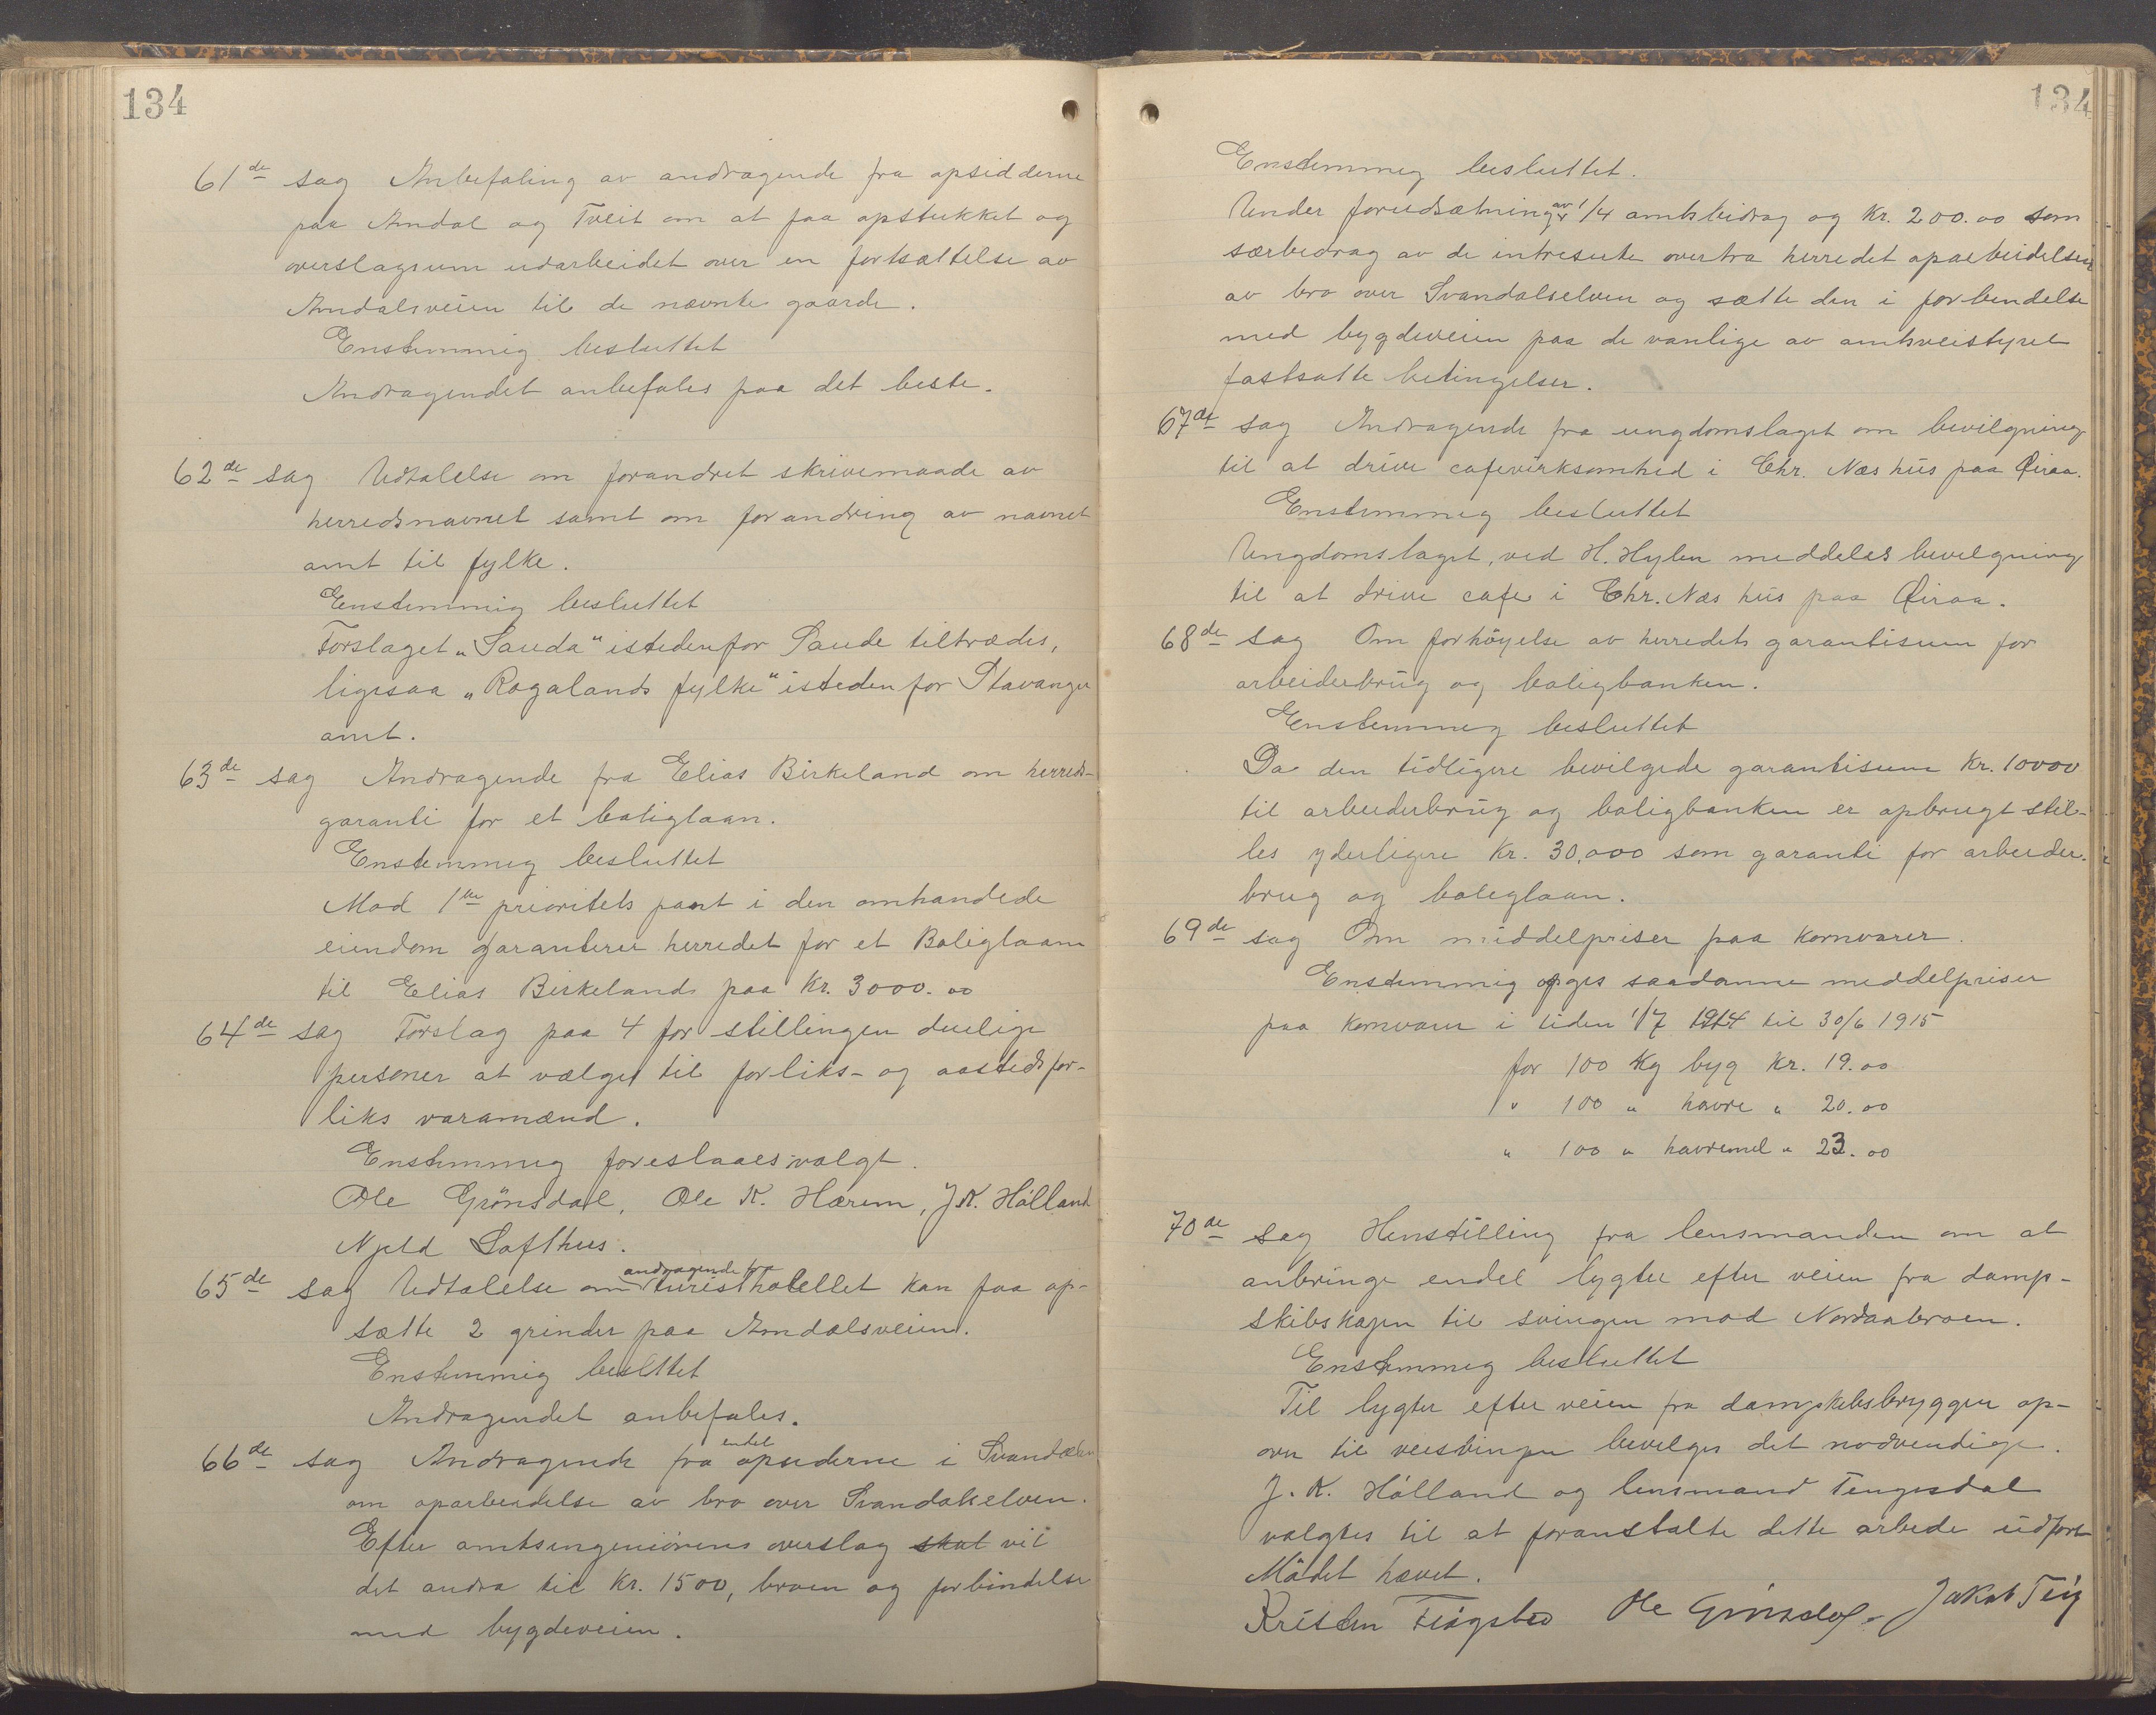 134
61de sag Anbefaling av andragende fra opsidderne
paa Amdal og Tveit om at faa opstukket og
overslagsum udarbeidet over en fortsættelse av
Amdalsveien til de nævnte gaarde.
Enstemmig besluttet
Andragendet anbefales paa det beste.
62de sag Udtalelse om forandret skrivemaade av
herredsnavnet samt om forandring av navnet
amt til fylke.
Enstemmig besluttet
Forslaget "Sauda" istedenfor Saude tiltrædes,
ligesaa "Rogalands fylke" isteden for Stavanger
amt.
63de sag Andragende fra Elias Birkeland om herreds-
garanti for et boliglaan.
Enstemmig besluttet
Mod 1ste prioritets pant i den omhandlede
eiendom garanterer herredet for et Boliglaan
til Elias Birkelands paa Kr. 3000.00
64de sag Forslag paa 4 for stillingen duelige
personer at vælges til forliks- og aastedsfor-
liks varamænd.
Enstemmig foreslaaes valgt.
Ole Grönsdal, Ole K. Hærem, J.K. Hölland
Njeld Lofthus.
65de sag Udtalelse om andragende fra turisthotellet kan faa op-
sætte 2 grinder paa Amdalsveien.
Enstemmig beslttet
Andragendet anbefales.
66de sag Andragende fra endel opsiderne i Svandalen
om oparbeidelse av bro over Svandalselven.
Efter amtsingeniörens overslag skal vil
det andra til Kr. 1500, broen og forbindelse
med bygdeveien.
134
Enstemmig besluttet.
Under forudsætning av 1/4 amtsbidrag og Kr. 200.00 som
særbedrag av de intreserte overtra herredet oparbeidelsen
av bro over Svandalselven og sætte den i forbendelse
med bygdeveien paa de vanlige av amtsveistyret
fastsatte betingelser.
67de sag Andragende fra ungdomslaget om bevilgning
til at drive cafevirksomhed i Chr. Næs hus paa Øiraa.
Enstemmig besluttet
Ungdomslaget, ved H. Hylen meddeles bevelgning
til at drive cafe i Chr. Næs hus paa Øiraa.
68de sag Om forhöyelse av herredets garantisum for
arbeiderbrug og boligbanken.
Enstemmig besluttet
Da den tidligere bevilgede garantisum Kr. 10000
til arbeiderbrug og boligbanken er opbrugt stil-
les yderligere Kr. 30,000 som garanti for arbeider-
brug og boliglaan.
69de sag Om middelpriser paa kornvarer.
Enstemmig opges saadanne meddelpriser
paa kornvarer i tiden 1/7 1914 til 30/6 1915
for 100 Kg byg Kr. 19.00
" 100 " havre " 20.00
" 100 " havremel " 23.00
70de sag Henstilling fra lensmanden om at
anbringe endel lygter efter veien fra damp-
skibskajen til svingen mod Nordaabroen.
Enstemmig besluttet
Til lygter efter veien fra dampskibsbryggen op-
over til veisvingen bevelges det nødvendige.
J. K. Hölland og lensmand Tengesdal
valgtes til at foranstalte dette arbede udfört
Mödet hævet.
Kristen Fløgstad Ole Grönsdal. Jakob Teig